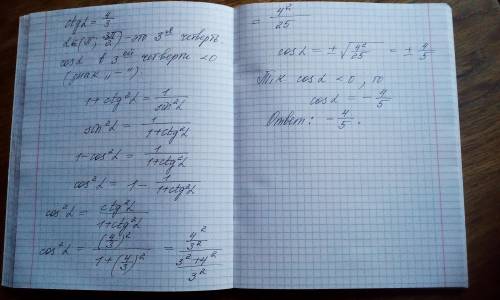 ctgα = 4/3
α∈(π; 3π/2) - это 3ая четверть
cosα в 3ей четверти < 0
(знак „-“)
1 + ctg²α = 1/sin²α
sin²α = 1/(1+ctg²α)
1 - cos²α = 1/(1+ctg²α)
cos²α = 1 - 1/(1+ctg²α)
cos²α = ctg²α/(1+ctg²α)
cos²α = (4/3)²/(1+(4/3)²) = (4²/3²)/((3²+4²)/3²)
= 4²/25
cosα = ±√(4²/25) = ± 4/5
Т.к cosα < 0, то
cosα = - 4/5
Ответ: - 4/5.